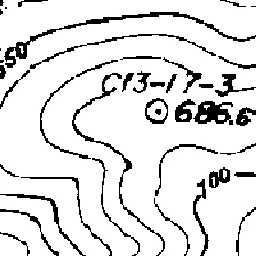 650
C13-17-3
686.6
700